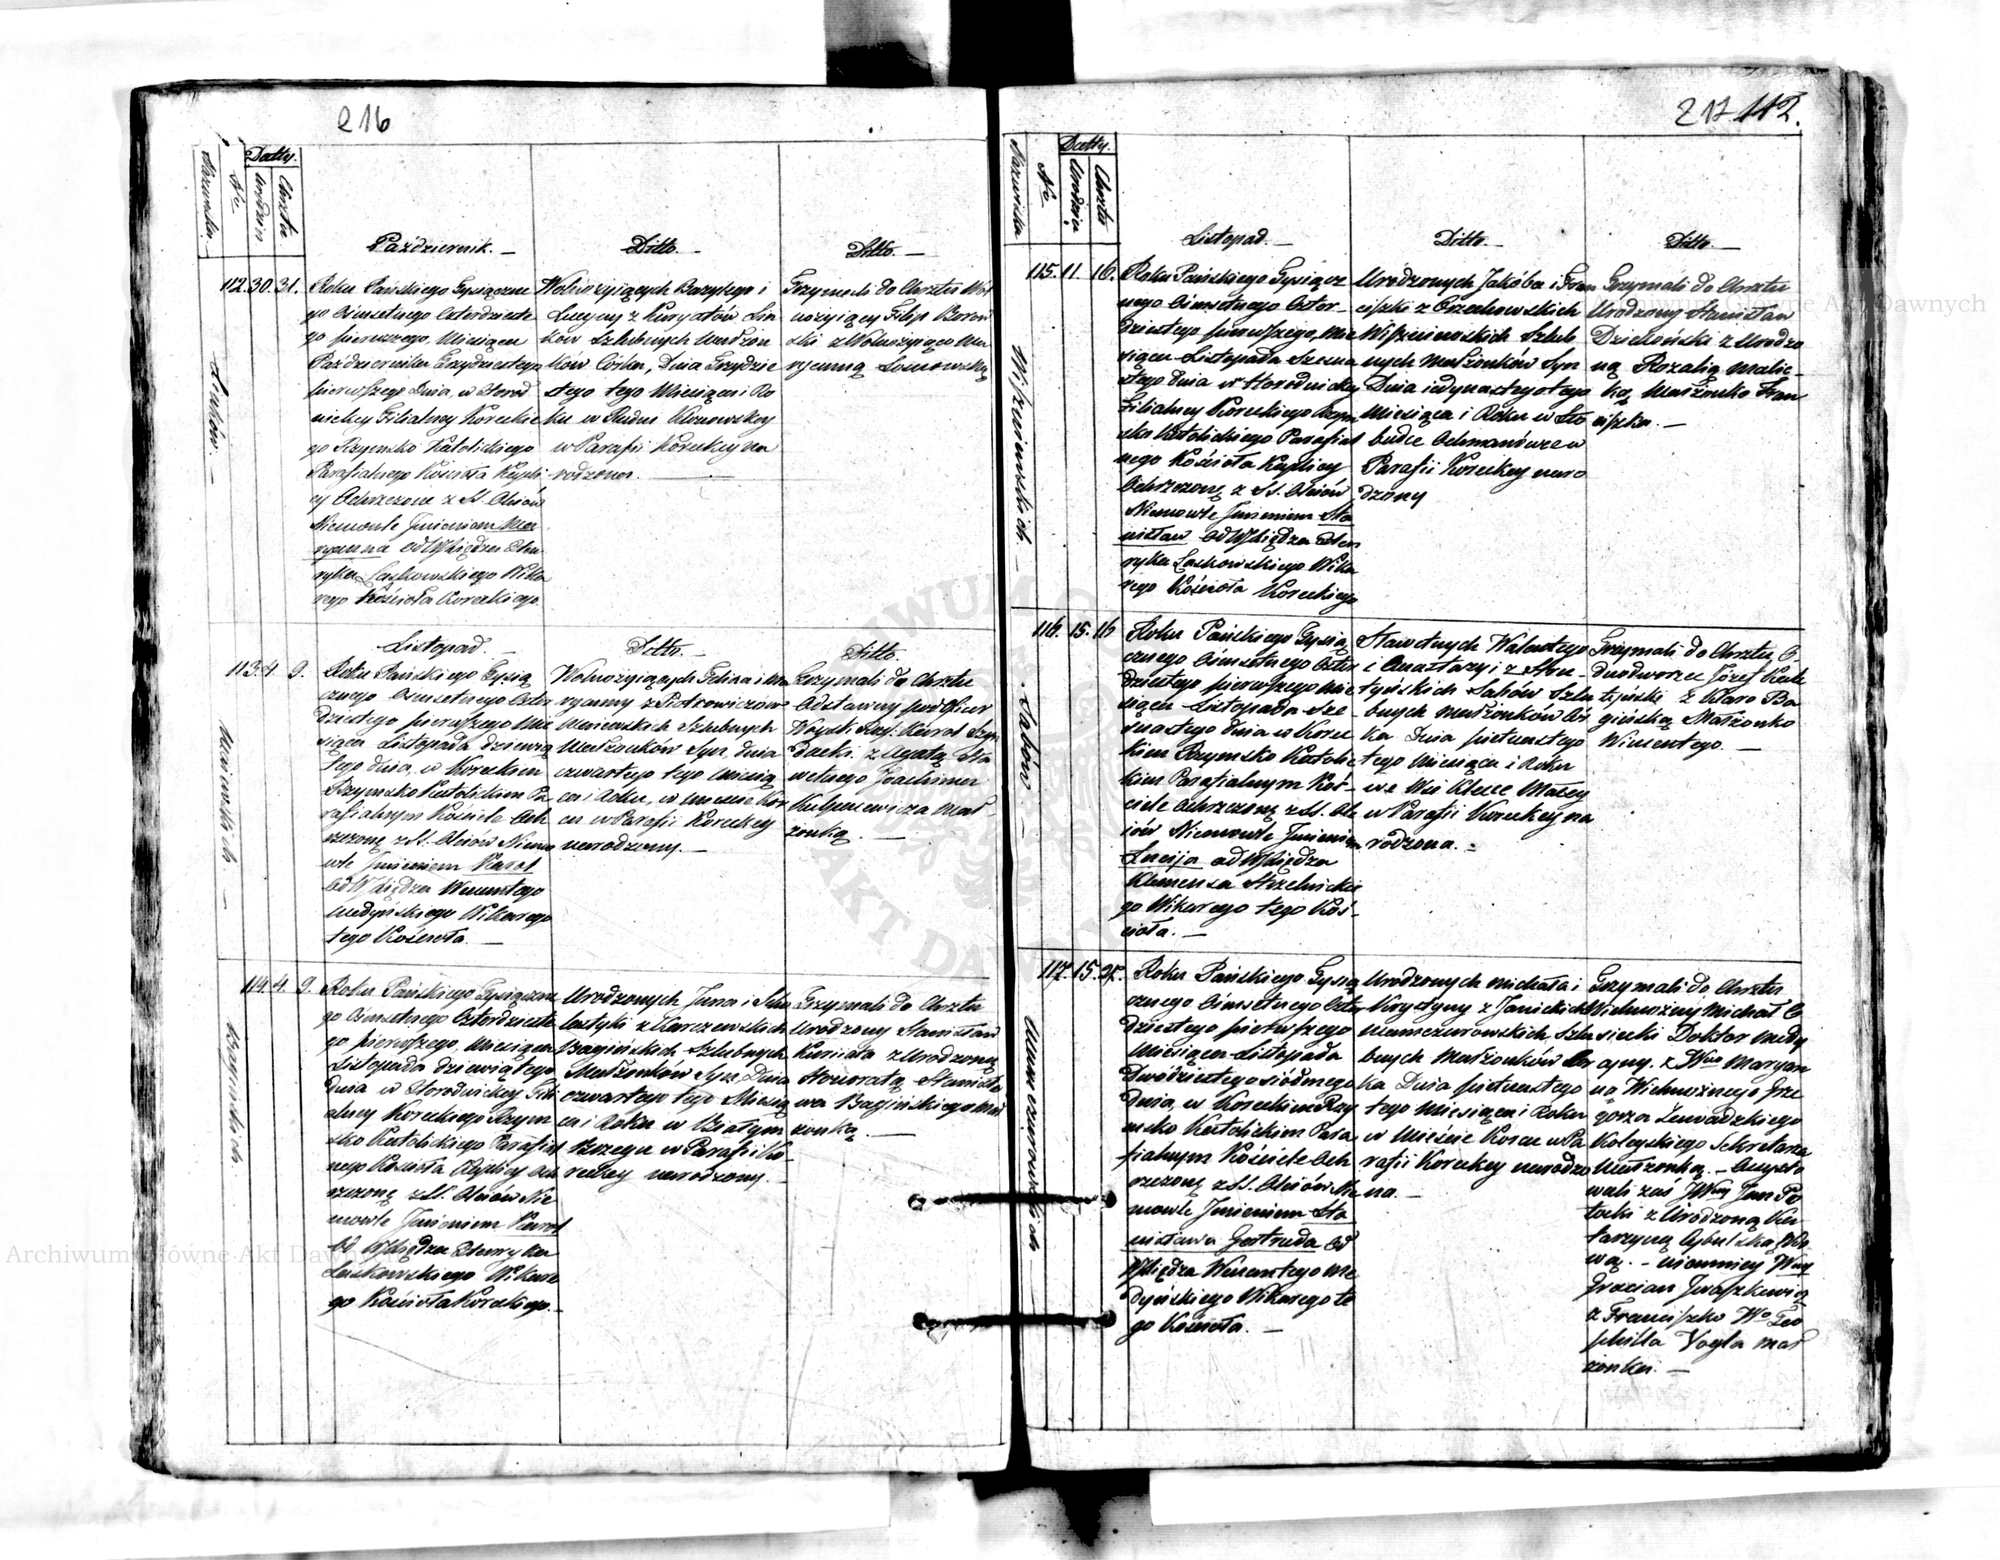 216
Datty.
Nazwiska
No
Urodzin
Chrztu
Październik. —
Ditto. —
Ditto. —
Linków. —
112. 30. 31.
Roku Pańskiego Tysiączne
go Ośmsetnego Czterdzieste
go pierwszego, Miesiąca
Października Trzydziestego
pierwszego Dnia, w Horod
nickiey Filialney Koreckie
go Rzymsko Katolickiego
Parafialnego Kościoła Kapli-
cy Ochrzczone z SS. Olejów
Niemowle Imieniem Mar
ryanna od W Xiędza Hen
ryka Laskowskiego Wika
rego Kościoła Koreckiego.
Wolnożyiących Bazylego i
Lucyny z
Ków Szlubnych Małżon
ków Córka, Dnia Trzydzie
stego tego Miesiąca i Ro
ku w Rudni
w Parafii Koreckiey na
rodzona. —
Trzymali do Chrztu Wol
nożyiący Filip Borow
ski z Wolnożyiącą Ma
ryanną
Listopad. —
Ditto. —
Ditto. —
113. 4. 9.
Roku Pańskiego Tysią
cznego Ośmsetnego Czter
dziestego pierwszego Mie
siąca Listopada dziewią
tego dnia, w Koreckim
Rzymsko Katolickim Pa
rafialnym Kościele Och
rzczono z SS. Olejów Niemo
wle Imieniem Karol
od W Xiędza Wincentego
Medyńskiego Wikarego
tego Kościoła. —
Wolnożyiących Felixa i Ma
ryanny z Piotrowiczów
Szlubnych
Małżonków Syn, dnia
czwartego tego Miesią
ca i Roku, w Mieście Kor
cu w Parafii Koreckiey
narodzony. —
Trzymali do Chrztu
Odstawny
Karol
z Agatą Sła
wetnego Joachima
Mał
żonką. —
Bagińskich
114. 4. 9.
Roku Pańskiego Tysiączne
go Ośmsetnego Czterdzieste
go pierwszego, Miesiąca
Listopada dziewiątego
dnia w Horodnickiey Fili
alney Koreckiego Rzym
sko Katolickiego Parafial
nego Kościoła Kaplicy Och
rzczono z SS. Olejów Nie
mowle Imieniem Karol
od W Xiędza Henryka
Laskowskiego Wikare
go Kościoła Koreckiego. —
Urodzonych Jana i Scho
lastyki z Karczewskich
Bagińskich Szlubnych
Małżonków Syn, Dnia
czwartego tego Miesią
ca i Roku w Białym
Brzegu w Parafii Ko-
reckiey narodzony. —
Trzymali do Chrztu
Urodzony Stanisław
Kuniata z Urodzoną
Honoratą Stanisła
wa Bagińskiego Mał
żonką. —
217 112.
Datty.
Nazwiska
No
Urodzin
Chrztu
Listopad. —
Ditto. —
Ditto. —
Wiszniewskich. —
115. 11. 16.
Roku Pańskiego Tysiącz
nego Ośmsetnego Czter-
dziestego pierwszego, Mie
siąca Listopada Szesna
stego dnia w Horodnickiey
Filialney Koreckiego Rzym
sko Katolickiego Parafial
nego Kościoła Kaplicy
Ochrzczono z SS. Olejów
Niemowle Imieniem Sta
nisław od W Xiędza Hen
ryka Laskowskiego Wika
rego Kościoła Koreckiego
Urodzonych Jakóba i Fran
ciszki z Orzechowskich
Wiszniewskich Szlub
nych Małżonków Syn
Dnia iedynastego tego
Miesiąca i Roku w Sło
budce Ochmanówce w
Parafii Koreckiey naro
dzony
Trzymali do Chrztu
Urodzony Stanisław
Dziekoński z Urodzo
ną Rozalią Malic-
ką Małżonko Fran
ciszka. —
Sahów —
116. 15. 16
Roku Pańskiego Tysią
cznego Ośmsetnego Czter
dziestego pierwszego Mie
siąca Listopada Sze
snastego dnia w Korec
kim Rzymsko Katolic
kim Parafialnym Koś-
ciele Ochrzczono z SS. Ole
iów Niemowle Imieniem
Lucija od W Xiędza
Klemensa Strzelnickie
go Wikarego tego Koś-
cioła. —
Sławetnych Walentego
i Anastazyi z
Sahów Szlu
bnych Małżonków Cór
ka Dnia pietnastego
tego Miesiąca i Roku
we Wsi
w Parafii Koreckiey na
rodzona. —
Trzymali do Chrztu O-
dnodworzec Józef
z Klaro Ba
gińską Małżonko
Wincentego. —
Niemczurowskich
117. 15. 27.
Roku Pańskiego Tysią
cznego Ośmsetnego Czter
dziestego pierwszego
Miesiąca Listopada
Dwódziestego siódmego
Dnia, w Koreckim Rzy
msko Katolickim Para
fialnym Kościele Och
rzczono z SS. Olejów Nie
mowle Imieniem Sta
nisława Gertruda od
W Xiędza Wincentego Me
dyńskiego Wikarego te
go Kościoła. —
Urodzonych Michała i
Krystyny z Janickich
Niemczurowskich Szlu
bnych Małżonków Cor
ka Dnia pietnastego
tego Miesiąca i Roku
w Mieście Korcu w Pa
rafii Koreckiey narodzo
na. —
Trzymali do Chrztu
Wielmożny Michał O
siecki Doktor Medy
cyny. z Wną Maryan
ną Wielmożnego Grze
gorza Lewadzkiego
Koleyskiego Sekretarza
Małżonką. — Assysto
wali zaś JWny Jan Po
tocki z Urodzoną Ka-
tarzyną Cybulską Wdo
wą. — niemniey Wny
Gracian Juszkiewicz
z Franciszko Wo Teo
phila Vogla Mał
żonka. —
Archiwum Główne Akt Dawnych
Archiwum Główne Akt Dawnych